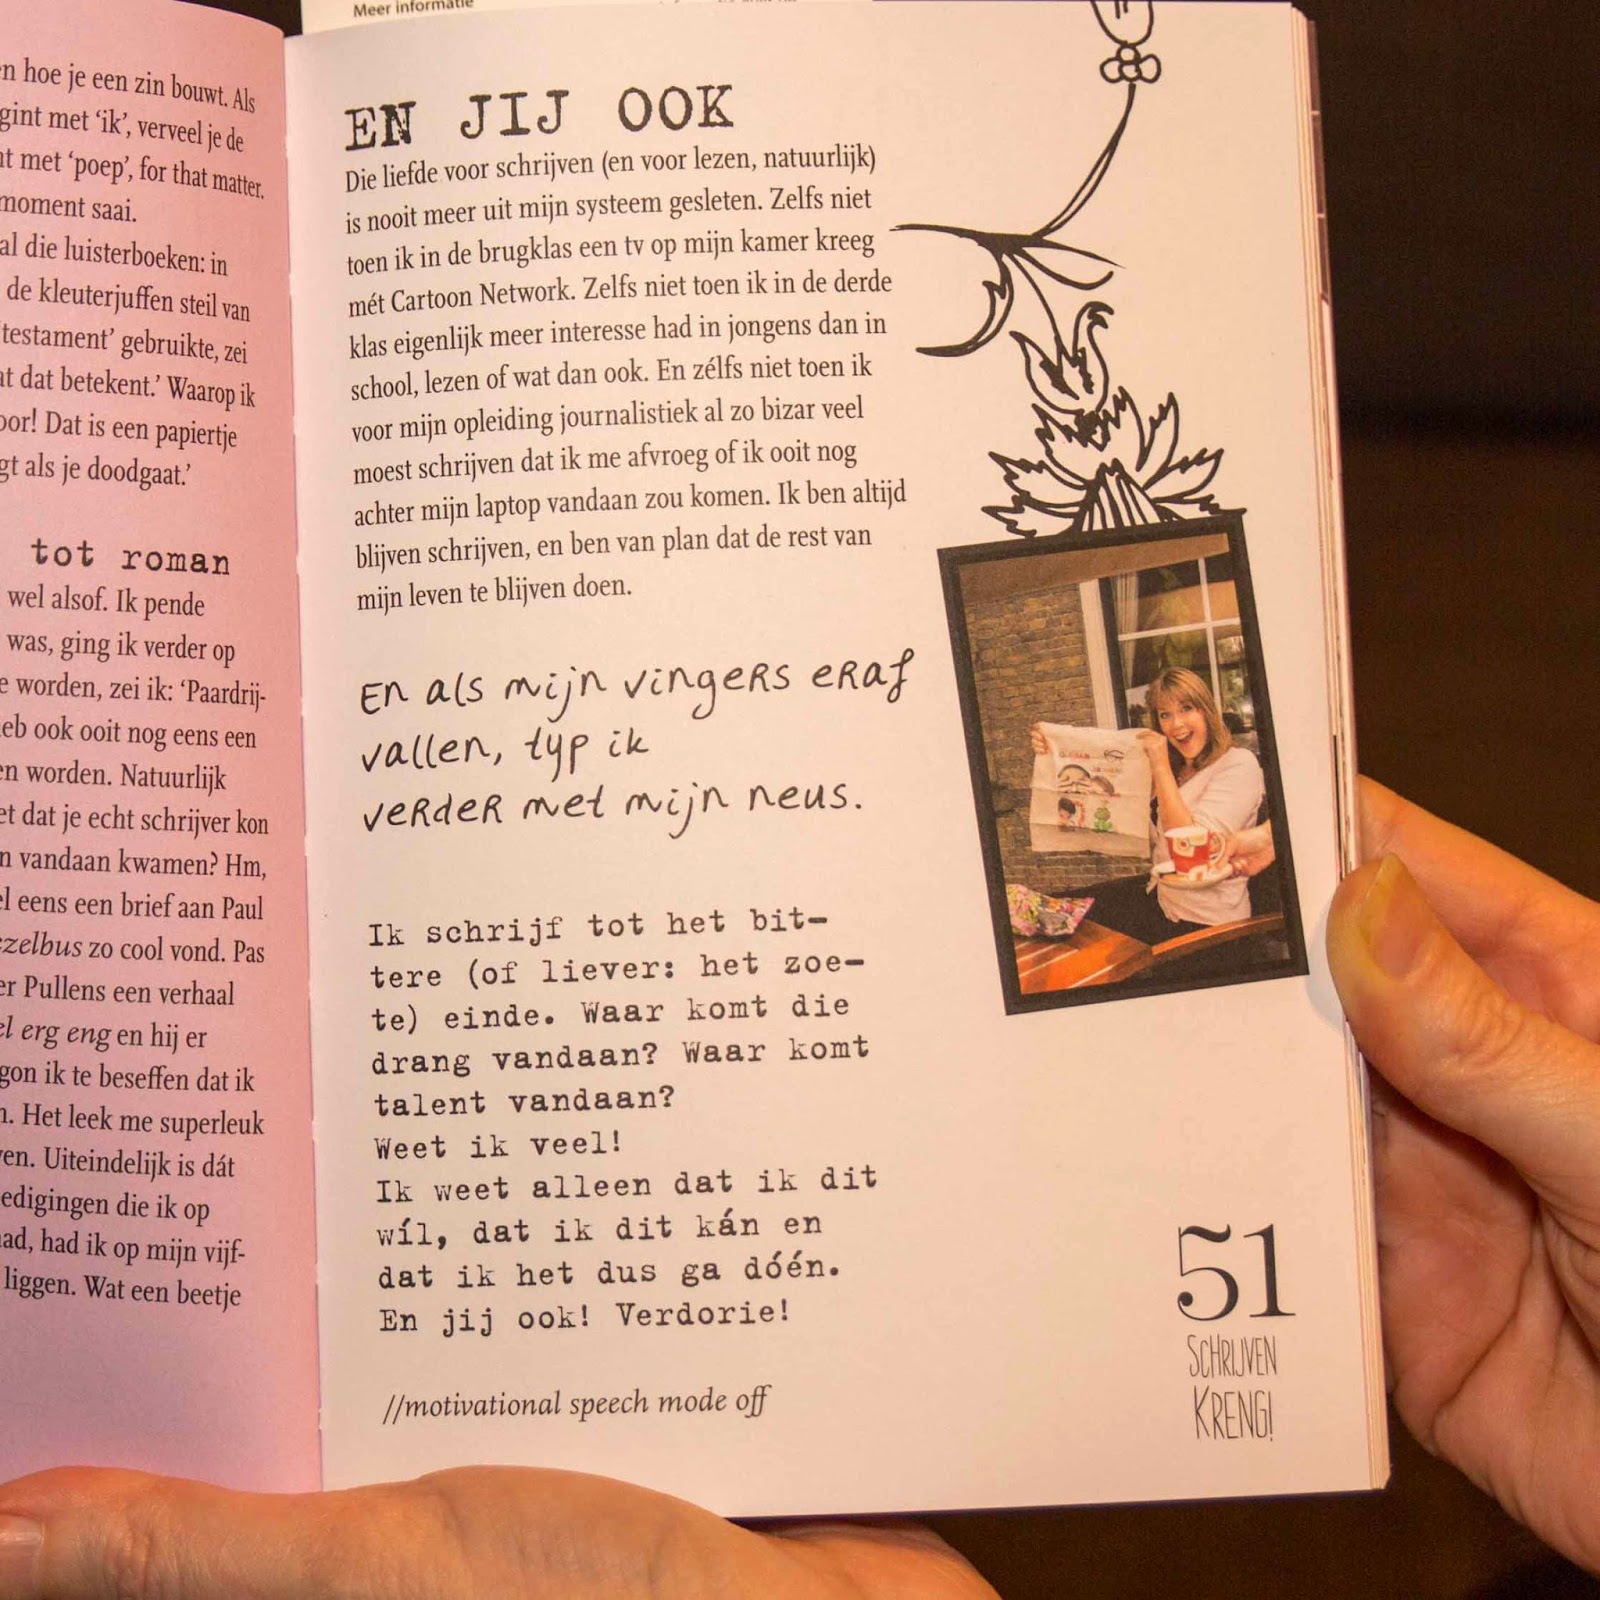 Meer informatie
n hoe je een zin bouwt. Als
gint met ‘ik’, verveel je de
t met ‘poep’, for that matter.
moment saai.
al die luisterboeken: in
de kleuterjuffen steil van
testament’ gebruikte, zei
at dat betekent.’ Waarop ik
oor! Dat is een papiertje
gt als je doodgaat.’
tot roman
wel alsof. Ik pende
was, ging ik verder op
e worden, zei ik: ‘Paardrij-
eb ook ooit nog eens een
en worden. Natuurlijk
et dat je echt schrijver kon
n vandaan kwamen? Hm,
el eens een brief aan Paul
zelbus zo cool vond. Pas
er Pullens een verhaal
el erg eng en hij er
gon ik te beseffen dat ik
n. Het leek me superleuk
ven. Uiteindelijk is dát
edigingen die ik op
ad, had ik op mijn vijf-
liggen. Wat een beetje
EN JIJ OOK
Die liefde voor schrijven (en voor lezen, natuurlijk)
is nooit meer uit mijn systeem gesleten. Zelfs niet
toen ik in de brugklas een tv op mijn kamer kreeg
mét Cartoon Network. Zelfs niet toen ik in de derde
klas eigenlijk meer interesse had in jongens dan in
school, lezen of wat dan ook. En zélfs niet toen ik
voor mijn opleiding journalistiek al zo bizar veel
moest schrijven dat ik me afvroeg of ik ooit nog
achter mijn laptop vandaan zou komen. Ik ben altijd
blijven schrijven, en ben van plan dat de rest van
mijn leven te blijven doen.
En als mijn vingers eraf
vallen, typ ik
verder met mijn neus.
Ik schrijf tot het bit-
tere (of liever: het zoe-
te) einde. Waar komt die
drang vandaan? Waar komt
talent vandaan?
Weet ik veel!
Ik weet alleen dat ik dit
wíl, dat ik dit kán en
dat ik het dus ga dóén.
En jij ook! Verdorie!
//motivational speech mode off
51
SCHRIJVEN
KRENG!